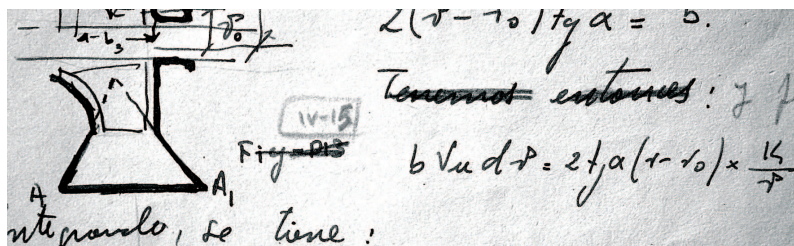 2(r-r₀) tg α = b.
a-b₃
r₀
Tenemos entonces : y
IV-15
Fig-P15
b Vu dr = 2 tg α (r-r₀) × K/r
A A₁
integrando, se tiene :